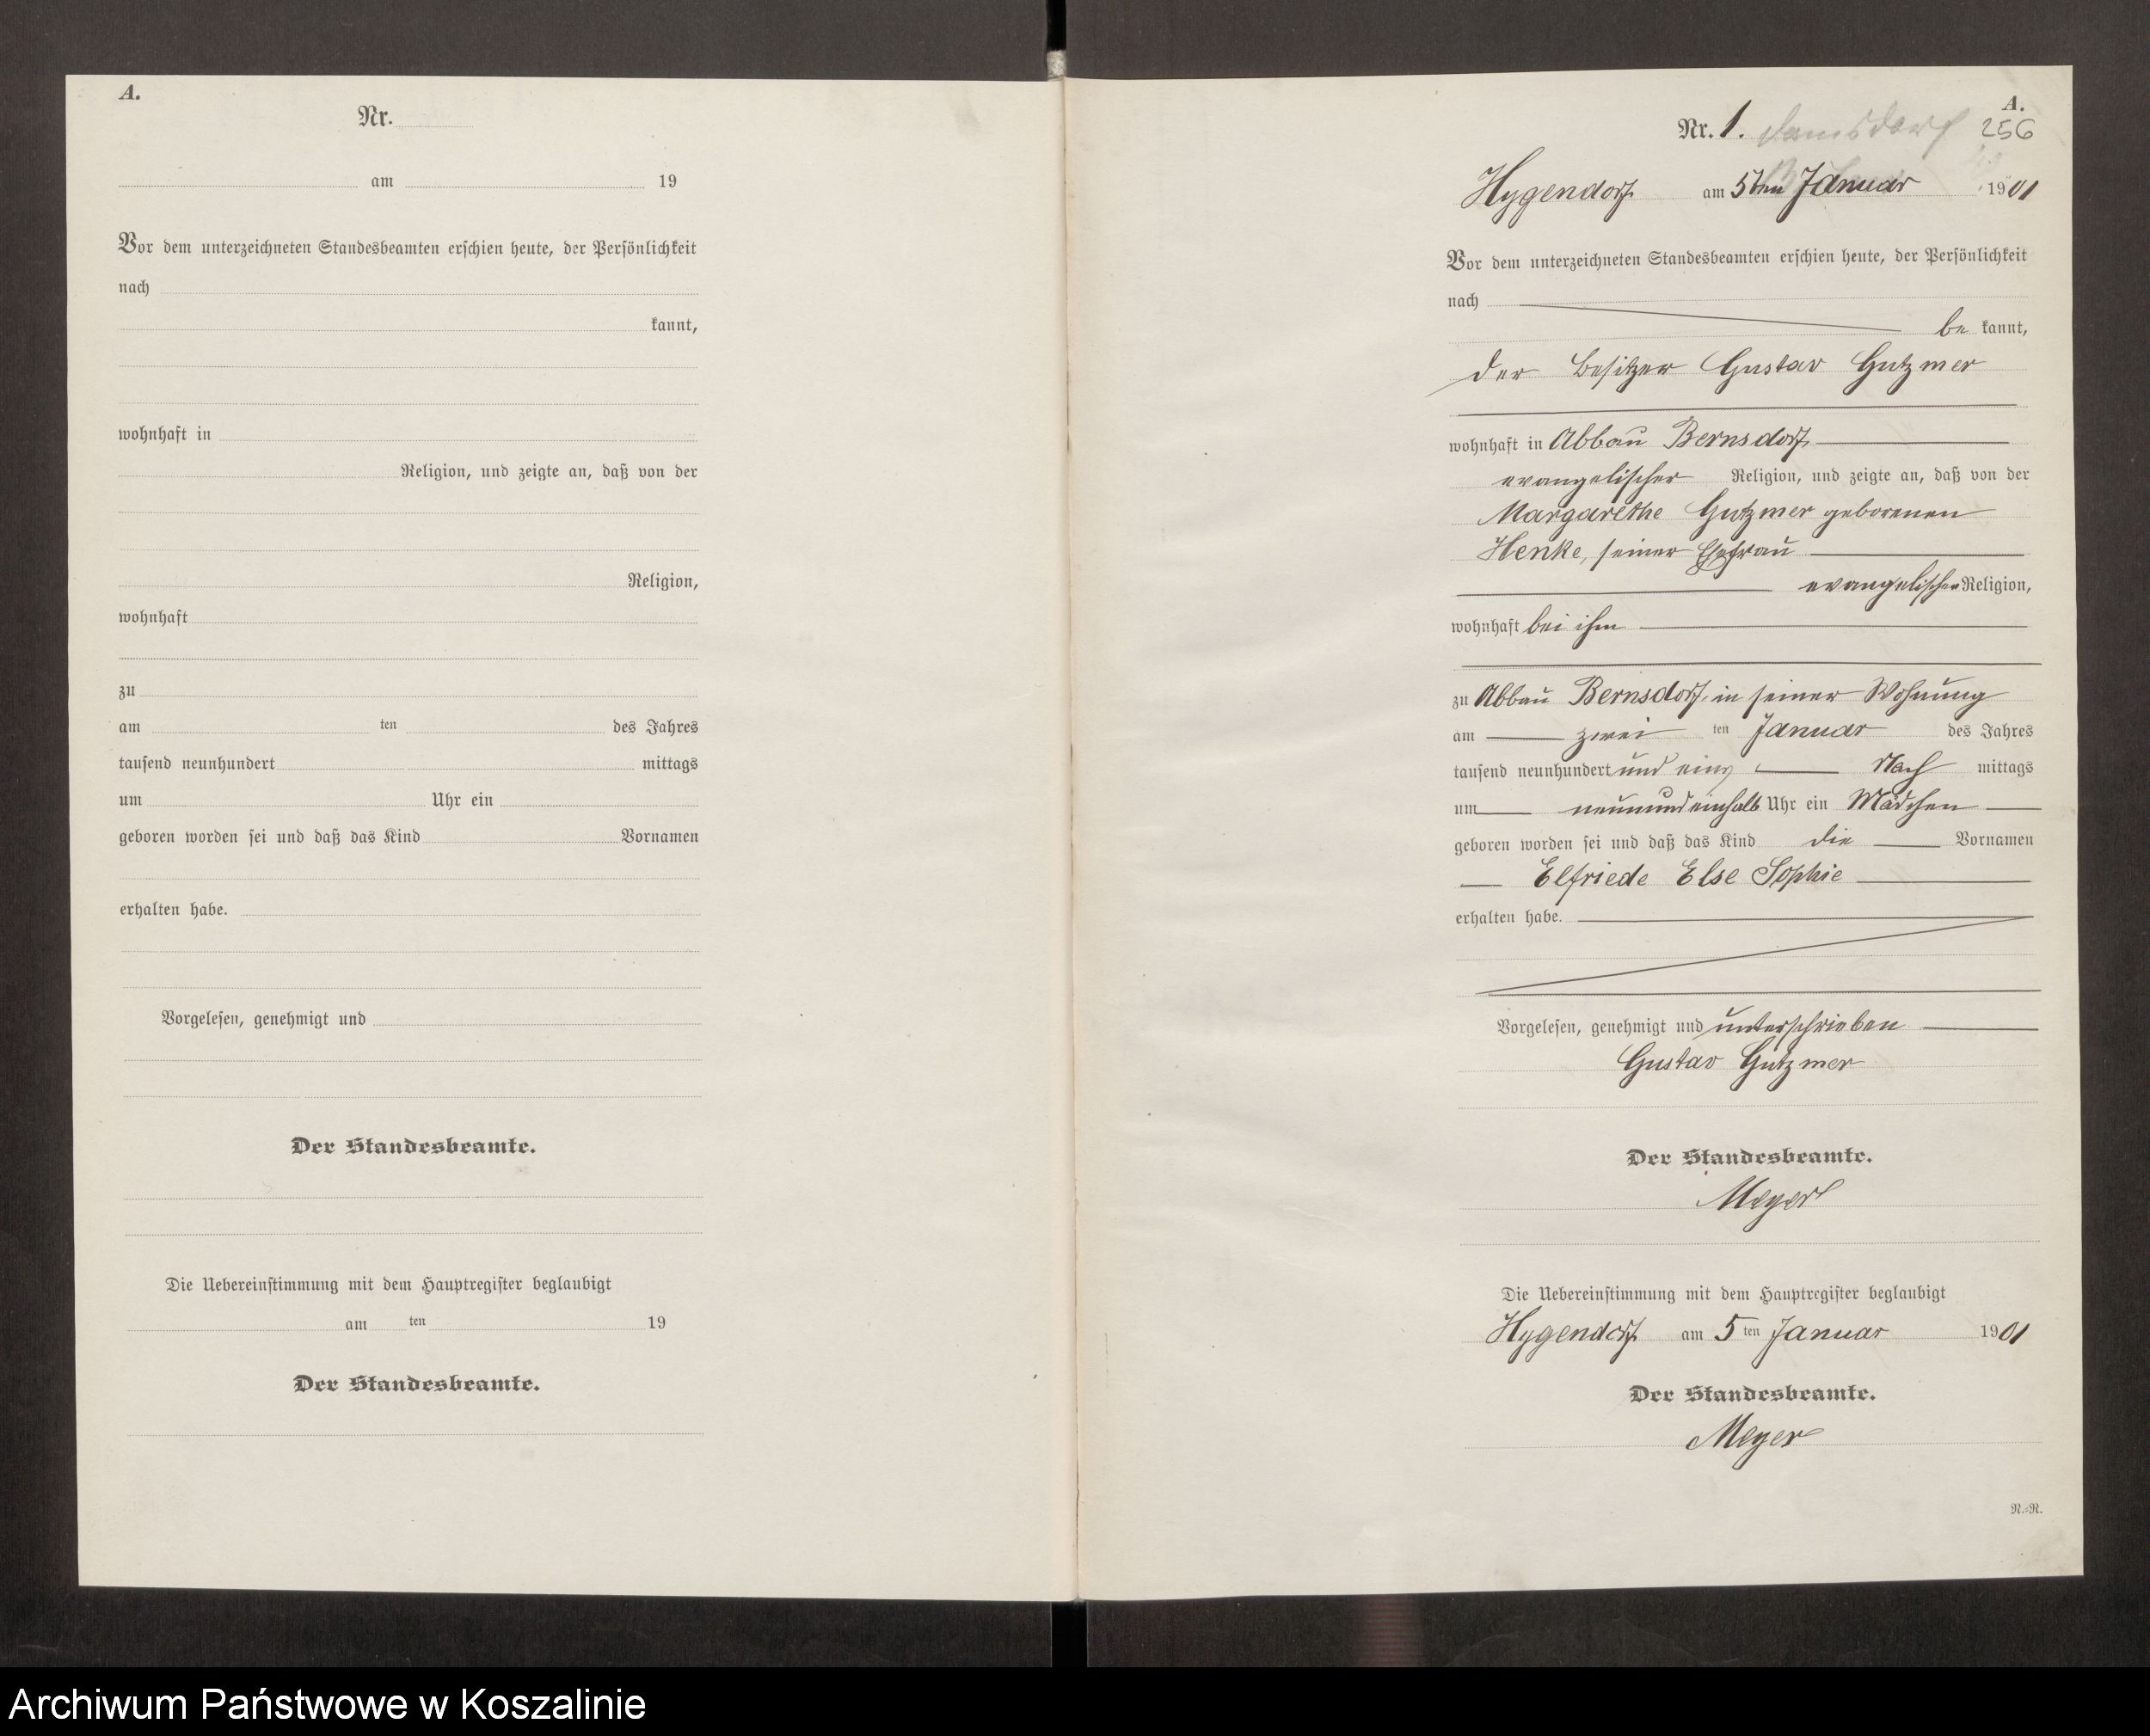 A.
Nr.
am 19
Vor dem unterzeichneten Standesbeamten erschien heute, der Persönlichkeit
nach
kannt,
wohnhaft in
Religion, und zeigte an, daß von der
Religion,
wohnhaft
zu
am ten des Jahres
tausend neunhundert mittags
um Uhr ein
geboren worden sei und daß das Kind Vornamen
erhalten habe.
Vorgelesen, genehmigt und
Der Standesbeamte.
Die Uebereinstimmung mit dem Hauptregister beglaubigt
am ten 19
Der Standesbeamte.
A.
Nr. 1. 256
Hygendorf am 5ten Januar 1901
Vor dem unterzeichneten Standesbeamten erschien heute, der Persönlichkeit
nach
be kannt,
der Besitzer Gustav Gutzmer
wohnhaft in Abbau Bernsdorf
evangelischer Religion, und zeigte an, daß von der
Margarethe Gutzmer geborenen
Henke, seiner Ehefrau
evangelischer Religion,
wohnhaft bei ihm
zu Abbau Bernsdorf in seiner Wohnung
am zwei ten Januar des Jahres
tausend neunhundert und eins Nach mittags
um neunundeinhalb Uhr ein Mädchen
geboren worden sei und daß das Kind die Vornamen
Elfriede Else Sophie
erhalten habe.
Vorgelesen, genehmigt und unterschrieben
Gustav Gutzmer
Der Standesbeamte.
Meyer
Die Uebereinstimmung mit dem Hauptregister beglaubigt
Hygendorf am 5 ten Januar 1901
Der Standesbeamte.
Meyer
N.-N.
Archiwum Państwowe w Koszalinie